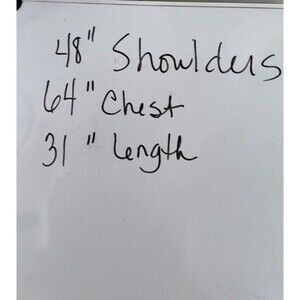 48" Shoulders
64" Chest
31" Length